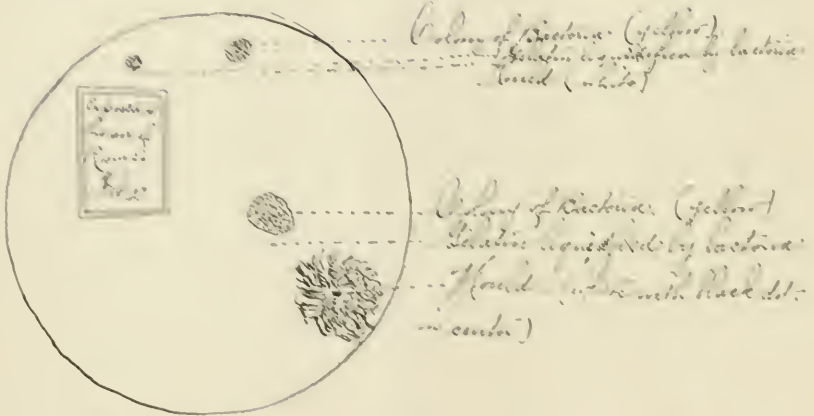 Colony of Bacteria (yellow)
Gelatin liquified by bacteria
Mould (white)
Exposed in
Room
Colony of Bacteria. (yellow)
Gelatin liquified by bacteria.
Mould (white with black dot
in center)